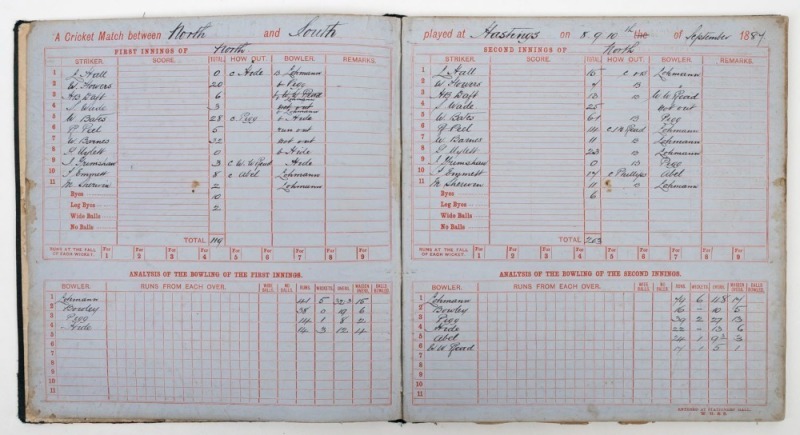 A Cricket Match between North and South
FIRST INNINGS OF North
STRIKER. SCORE. TOTAL HOW OUT. BOWLER. REMARKS.
1 L Hall 0 c Hide B Lohmann
2 W Flowers 20 b Pegg
3 H B Daft 6
4 J Wade 3 not out
5 W Bates 28 c Pegg b Hide
6 R Peel 5 run out
7 W Barnes 32 not out
8 0 b Hide
9 J Grimshaw 3 c W W Read Hide
10 T Emmett 8 c Abel Lohmann
11 M Sherwin 2 Lohmann
Byes 10
Leg Byes 2
Wide Balls
No Balls
TOTAL 119
RUNS AT THE FALL OF EACH WICKET. For 1 For 2 For 3 For 4 For 5 For 6 For 7 For 8 For 9
ANALYSIS OF THE BOWLING OF THE FIRST INNINGS.
BOWLER. RUNS FROM EACH OVER. WIDE BALLS. NO BALLS. RUNS. WICKETS. OVERS. MAIDEN OVERS. BALLS BOWLED.
1 Lohmann 41 5 15
2 Bowley 38 0 19 6
3 Pegg 14 1 8 2
4 Hide 14 3 12 4
5
6
7
8
9
10
11
played at Hastings on 8. 9 10 th the of September 1887
SECOND INNINGS OF North
STRIKER. SCORE. TOTAL HOW OUT. BOWLER. REMARKS.
1 L Hall 15 Lohmann
2 W Flowers 7 B
3 H B Daft B W W Read
4 J Wade 25 not out
5 W Bates 61 B Pegg
6 R Peel 14 Lohmann
7 W Barnes 11 B Lohmann
8 23 B Lohmann
9 J Grimshaw 0 B Pegg
10 T Emmett 17 c Phillips Abel
11 M Sherwin 11 B Lohmann
Byes 6
Leg Byes
Wide Balls
No Balls
TOTAL 203
RUNS AT THE FALL OF EACH WICKET. For 1 For 2 For 3 For 4 For 5 For 6 For 7 For 8 For 9
ANALYSIS OF THE BOWLING OF THE SECOND INNINGS.
BOWLER. RUNS FROM EACH OVER. WIDE BALLS. NO BALLS. RUNS. WICKETS. OVERS. MAIDEN OVERS. BALLS BOWLED.
1 Lohmann 74 6 48 17
2 Bowley 16 - 10 5
3 Pegg 39 2 27 13
4 Hide 22 - 13 6
5 Abel 24 1 3
6 W W Read 1 5 1
7
8
9
10
11
ENTERED AT STATIONERS' HALL.